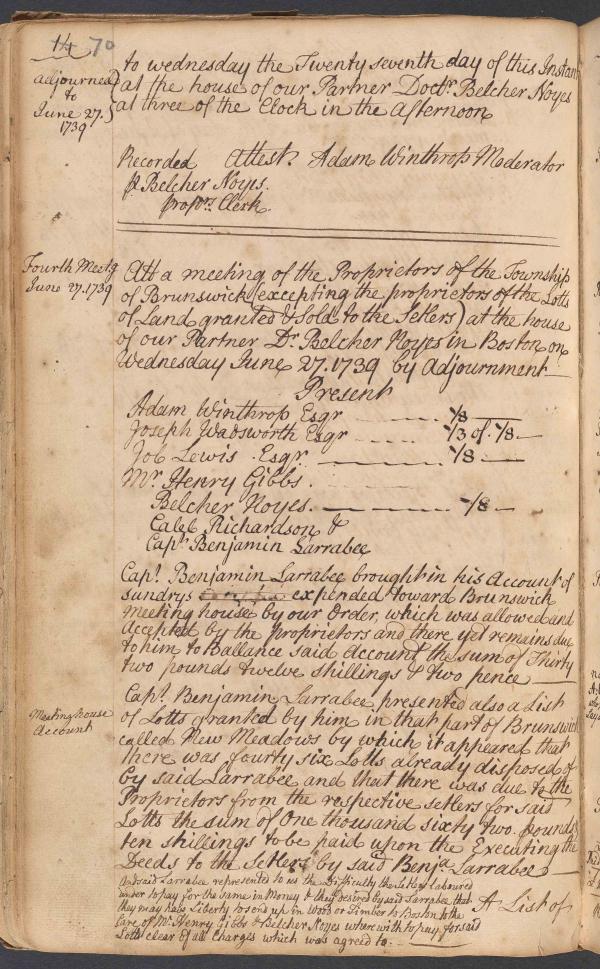 14 70
to wednesday the Twenty seventh day of this Instant
at the house of our Partner Doctr. Belcher Noyes
at three of the Clock in the afternoon
adjourned
to
June 27.
1739
Recorded Attest. Adam Winthrop Moderator
pr. Belcher Noyes.
Propr.s Clerk.
Fourth Meetg
June 27.1739
Att a meeting of the Proprietors of the Township
of Brunswick (excepting the proprietors of the Lotts
of Land granted & Sold to the Setlers) at the house
of our Partner Dr. Belcher Noyes in Boston on
Wednesday June 27.1739 by adjournment
Present
Adam Winthrop Esqr 1/8
Joseph Wadsworth Esqr 1/3 of 1/8
Job Lewis Esqr. 1/8
Mr. Henry Gibbs.
Belcher Noyes. 1/8
Caleb Richardson &
Capt. Benjamin Larrabee
Capt. Benjamin Larrabee brought in his account of
sundrys expended toward Brunswick
meeting house by our Order, which was allowed and
accepted by the Proprietors and there yet remains due
to him to Ballance said Account the sum of Thirty
two pounds twelve shillings & two pence
Meeting house
Account
Capt. Benjamin Larrabee presented also a List
of Lotts granted by him in that part of Brunswick
called New Meadows by which it appeared that
there was fourty six Lotts already disposed of
by said Larrabee and that there was due to the
Proprietors from the respective setlers for said
Lotts the sum of One thousand sixty two pounds
ten shillings to be paid upon the Executing the
Deeds to the Setlers by said Benja. Larrabee
And said Larrabee represented to us the Difficulty the Setlers Laboured
under to pay for the same in Money & they desired by said Larrabee that
they may have Liberty to send up in Wood or Timber to Boston to the
Care of Mr. Henry Gibbs & Belcher Noyes wherewith to pay for said
Lotts clear of all Charges which was agreed to.
A List of